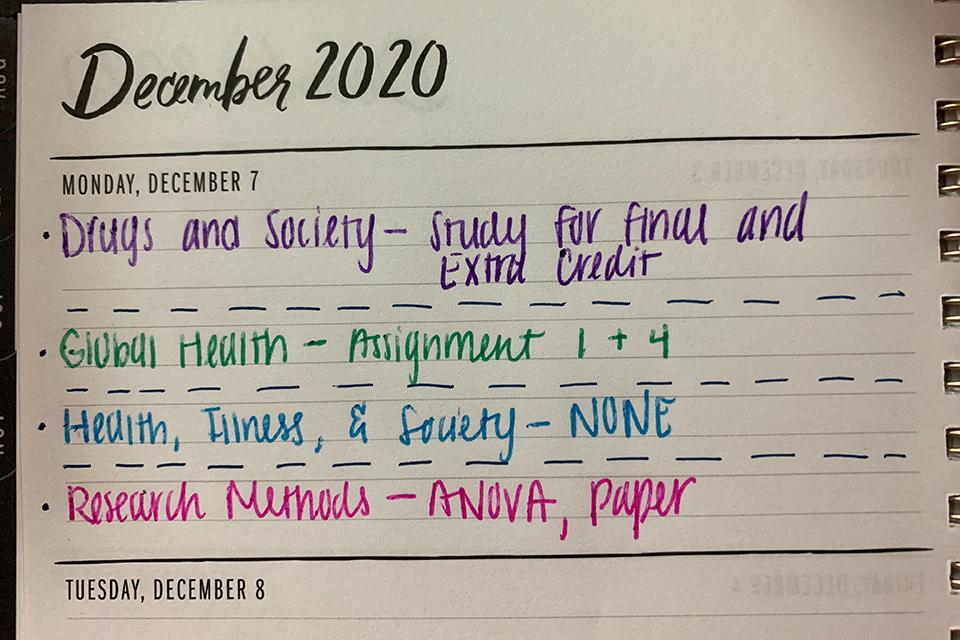 December 2020
MONDAY, DECEMBER 7
• Drugs and Society – Study for final and
Extra Credit
• Global Health – Assignment 1 + 4
• Health, Illness, & Society – NONE
• Research Methods – ANOVA, paper
TUESDAY, DECEMBER 8